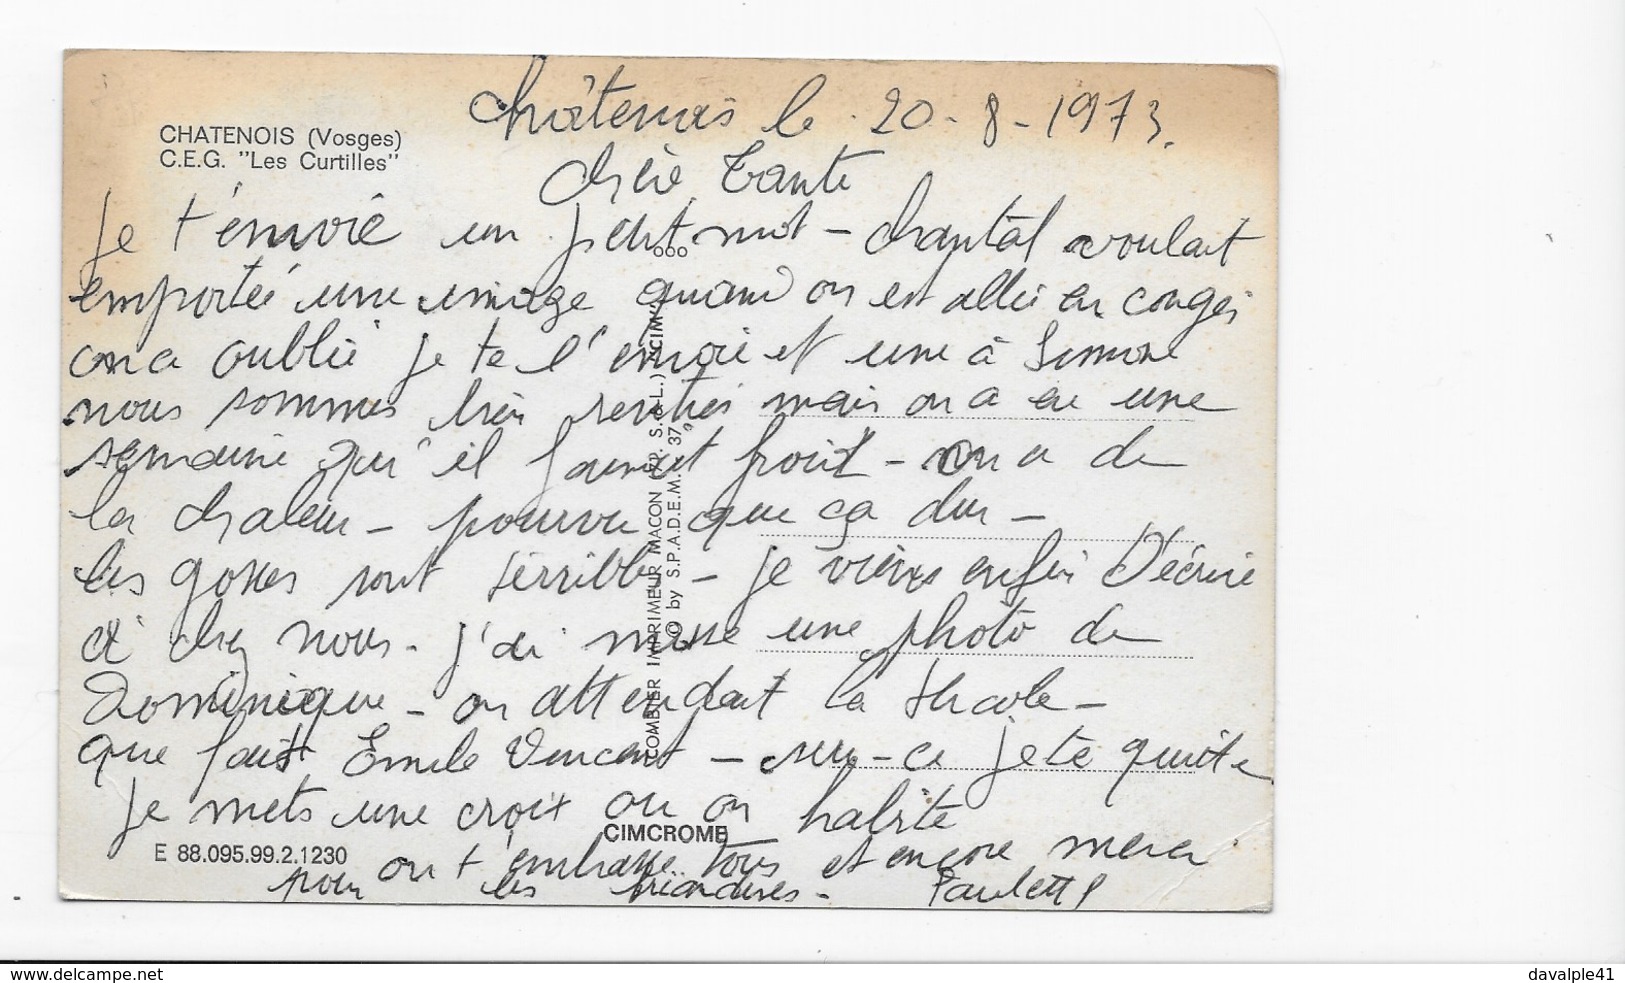 Châtenois le 20-8-1973.
CHATENOIS (Vosges)
C.E.G. "Les Curtilles"
Chère Tante
Je t'envoie un petit mot - Chantal voulait
emportée une image quand on est allée en congés
on a oublié je te l'envoie et une à Simone
nous sommes bien rentrés mais on a eu une
semaine qu'il faisait froid - on a de
la chaleur - pourvu que ça dur -
les gosses sont terribles - je viens enfin d'écrire
à chez nous. j'ai misse une photo de
Dominique - on attendait la
que fait Emile Vincent - sur - ce je te quitte
Je mets une croix ou on habite
on t'embrasse tous et encore merci
pour les friandises - Paulette
COMBIER IMPRIMEUR MACON (EP. S.&L.) "CIM"
© by S.P.A.D.E.M. 37
CIMCROME
E 88.095.99.2.1230
www.delcampe.net
davalple41